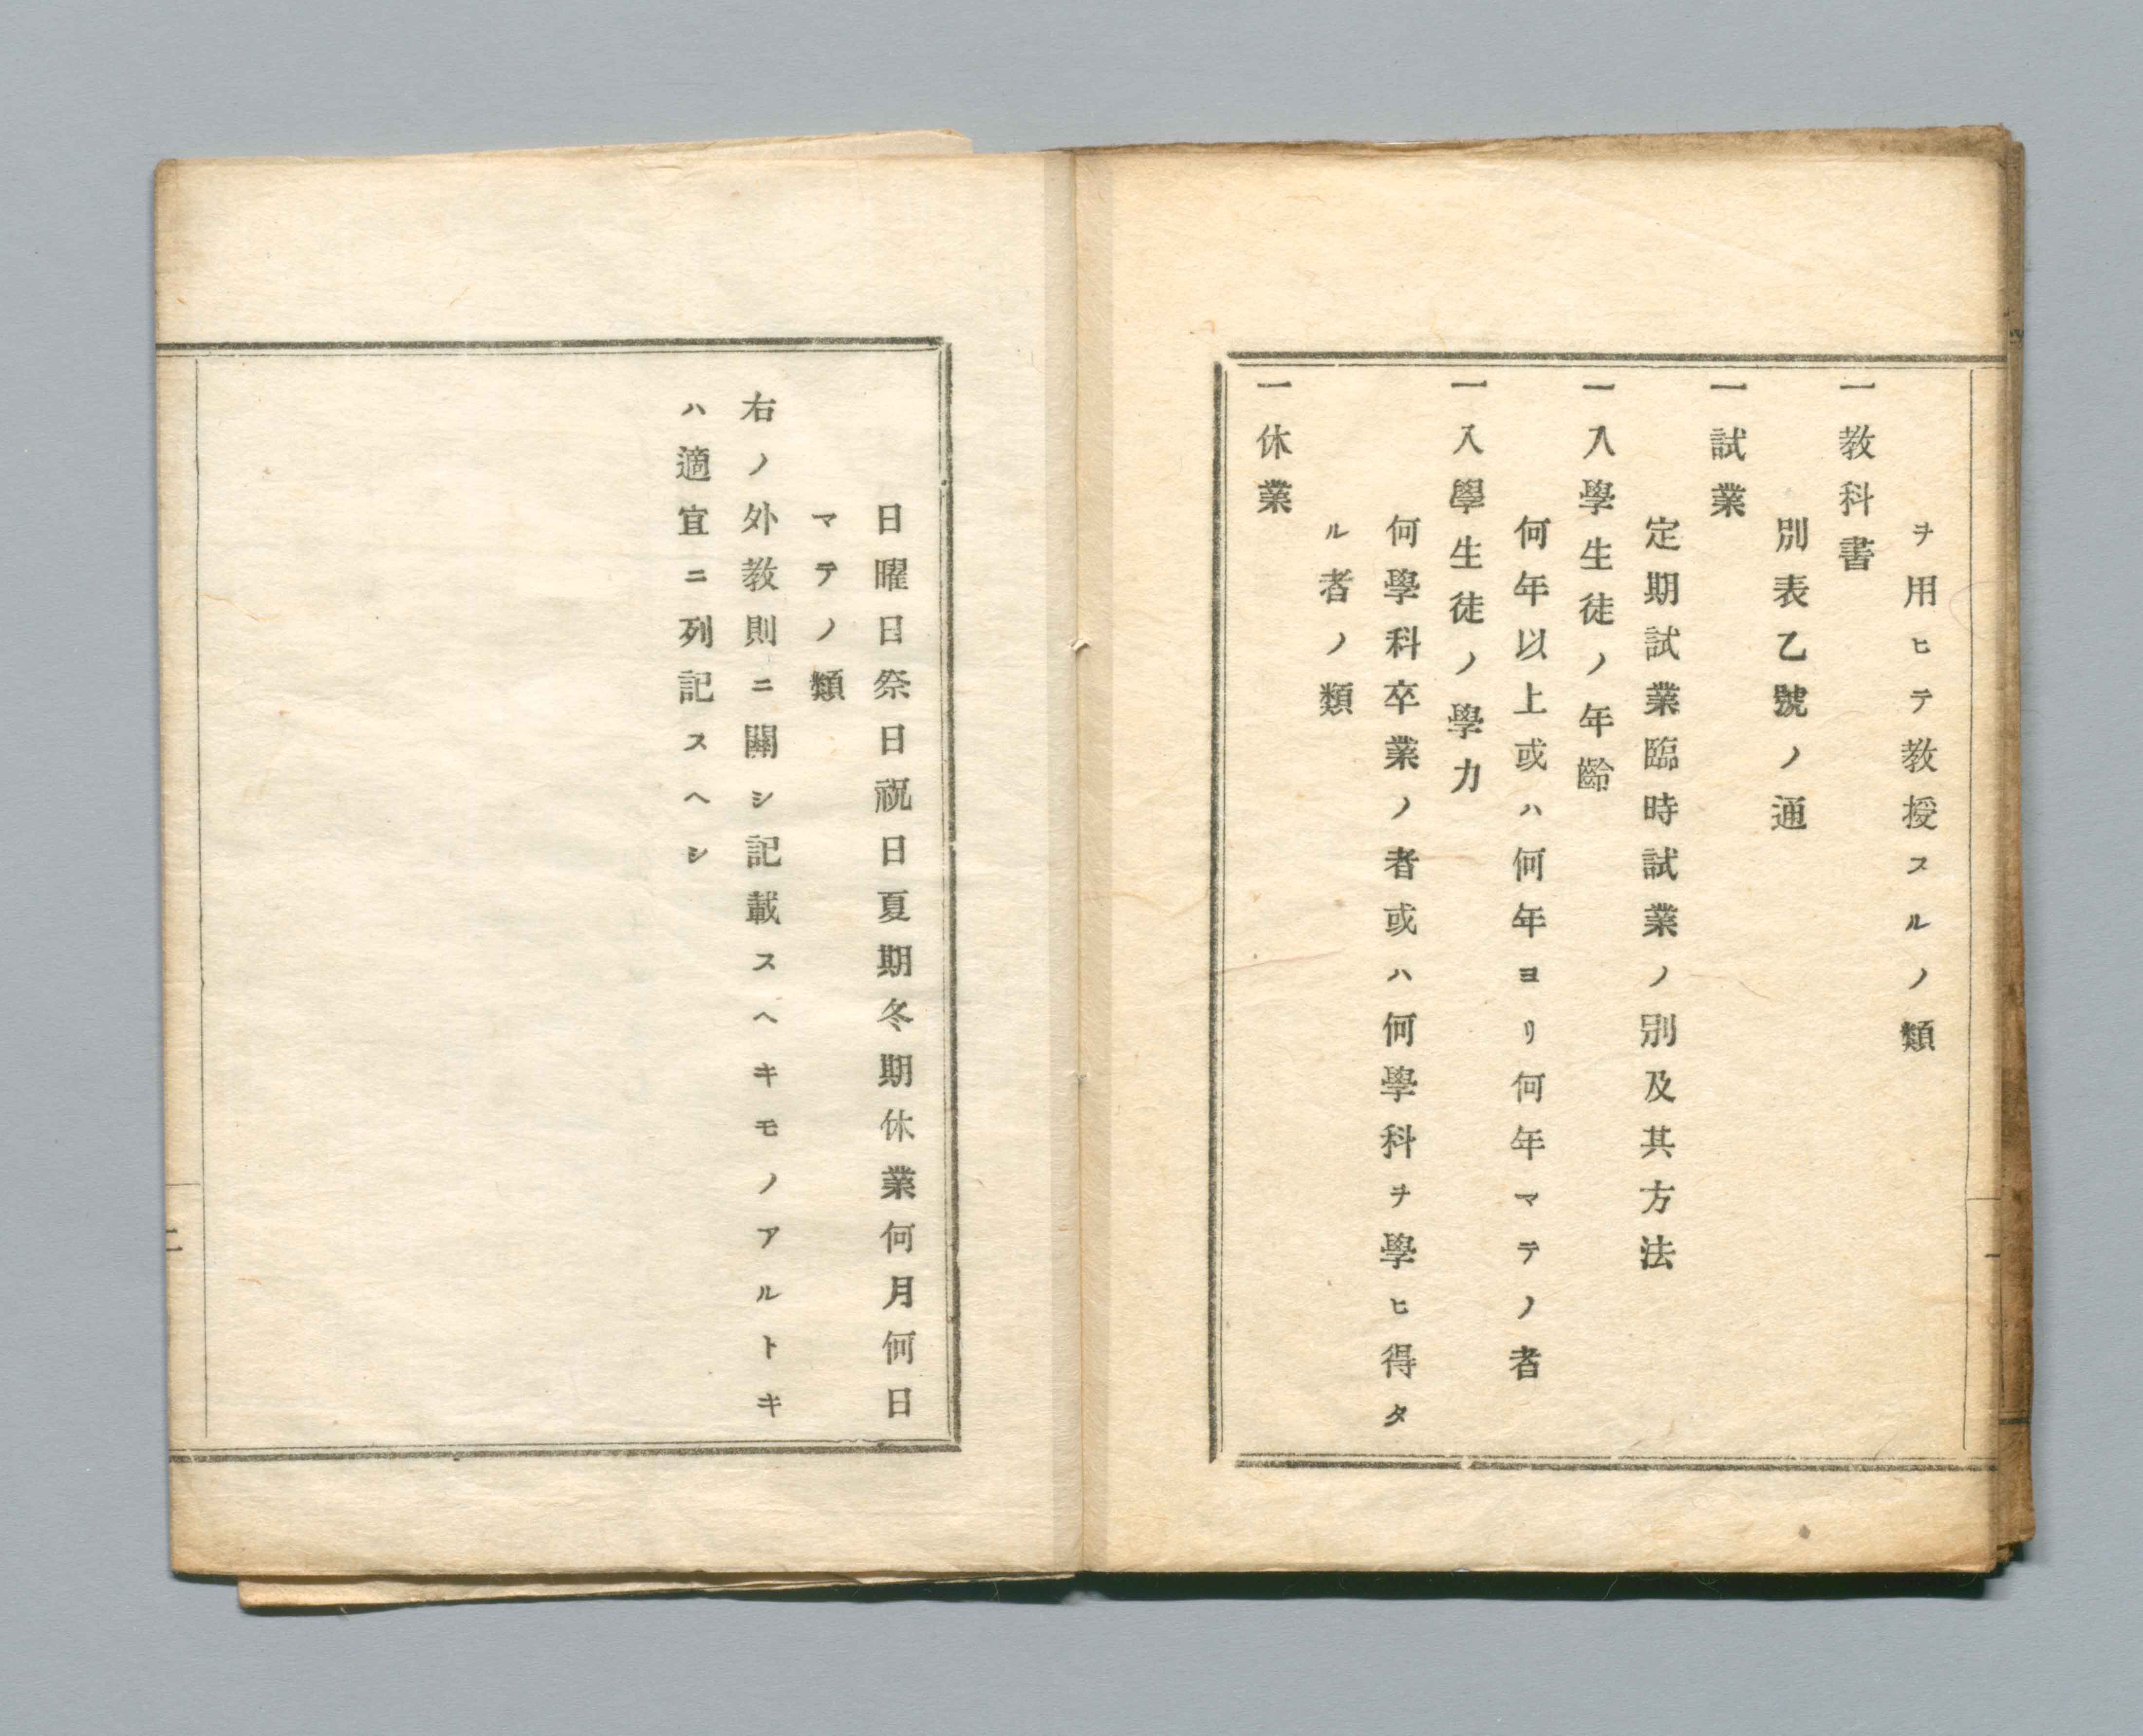 ヲ用ヒテ教授スルノ類
一教科書
別表乙號ノ通
一試業
定期試業臨時試業ノ別及其方法
一入學生徒ノ年齡
何年以上或ハ何年ヨリ何年マテノ者
一入學生徒ノ學力
何學科卒業ノ者或ハ何學科ヲ學ヒ得タ
ル者ノ類
一休業
日曜日祭日祝日夏期冬期休業何月何日
マテノ類
右ノ外教則ニ關シ記載スヘキモノアルトキ
ハ適宜ニ列記スヘシ
二